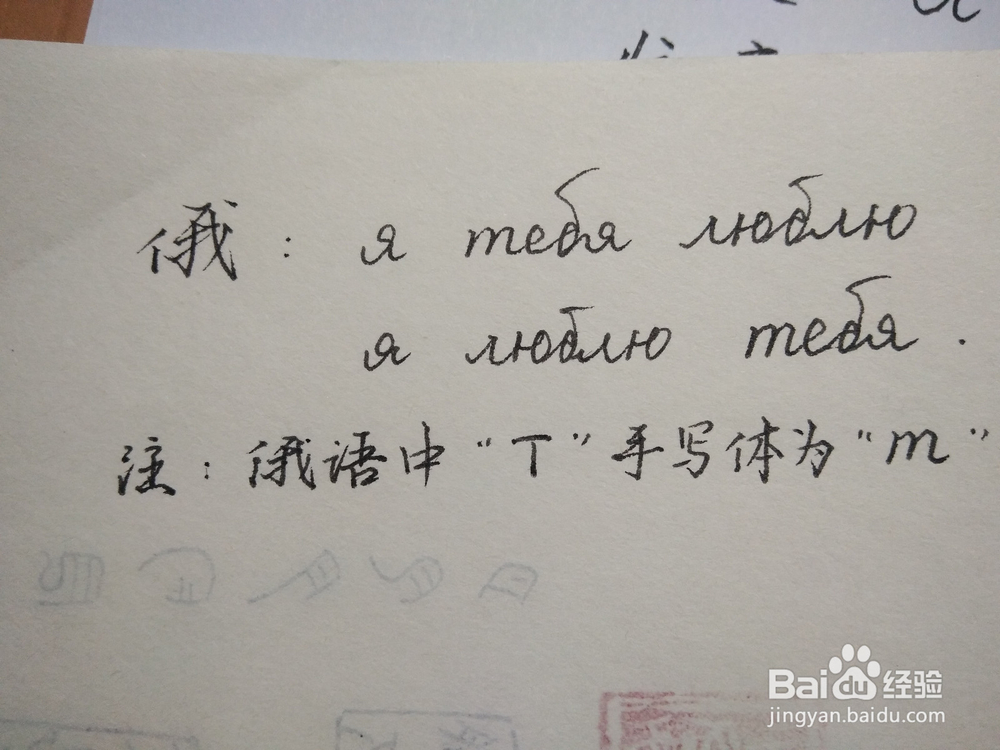 俄：я тебя люблю
я люблю тебя.
注：俄语中“T”手写体为“m”
Baidu经验
jingyan.baidu.com